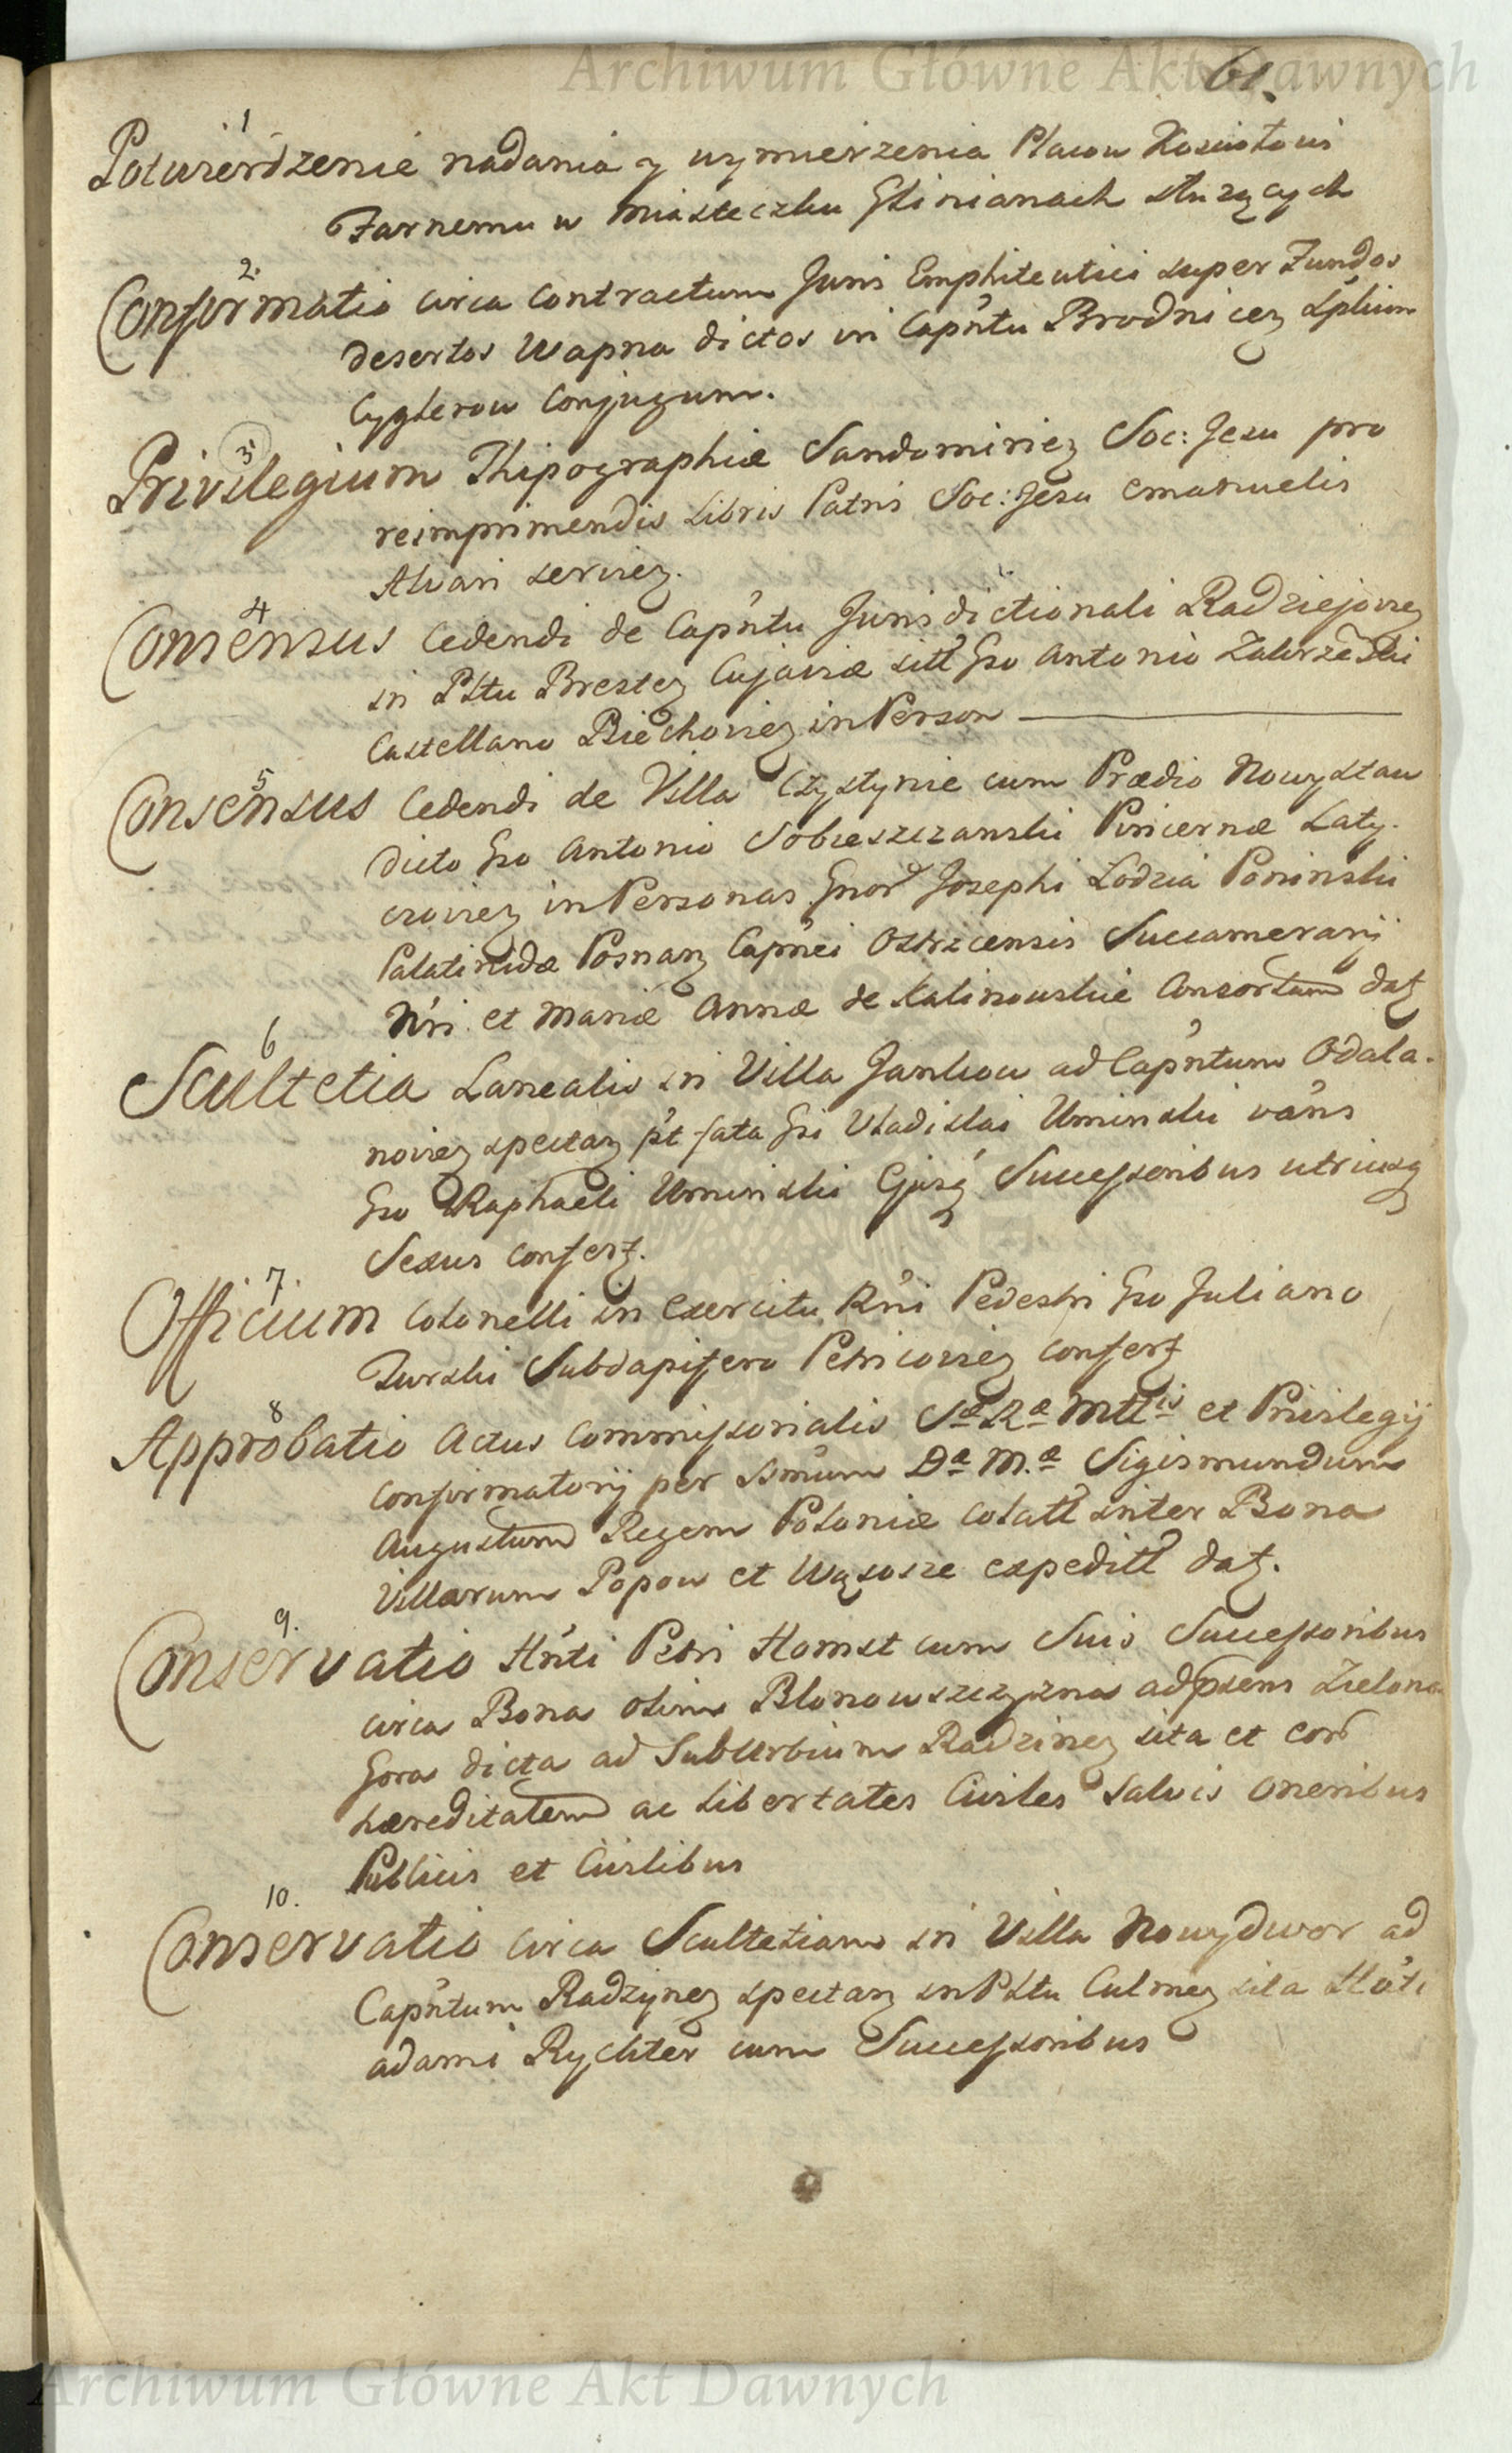 Archiwum Główne Akt Dawnych
61.
1
Potwierdzenie nadania y wymierzenia Placow Kosciołowi
Farnemu w Miasteczku Glinianach słuzących
2.
Confirmatio circa Contractum Juris Emphiteutici super Fundos
desertos Wapna dictos in Capńtu Brodnicen
Cyglerow Conjugum.
3
Privilegium Thipographiæ Sandomirien Soc: Jesu pro
reimprimendis Libris Patris Soc: Jesu Emanuelis
Alvari servien.
4
Consensus Cedendi de Capńtu Jurisdictionali Radziejovien
in Pltu Bresten Cujaviæ sitt Gso Antonio Zakrzewski
Castellano Biechovien in Person
5
Consensus Cedendi de Villa Czystynie cum Prædio Nowystaw
dicto Gso Antonio Sobieszczanski Pincernæ Laty-
czovien in Personas Gnor Josephi Lodzia Poninski
Palatinidæ Posnan Capńei Ostrzcensis Succamerarij
Nri et Mariæ Annæ de Kalinowskie Consortum dat
6
Scultetia Lanealis in Villa Jankow ad Capńtum Odala-
novien spectan pt fata Gsi Vladislai Uminski vańs
Gso Raphaeli Uminski Ejusq Successoribus utriusq
Sexus confert.
7.
Officium Colonelli in Exercitu Rńi Pedestri Gso Juliano
Turski Subdapifero Petricovien confert
8
Approbatio Actus Commissorialis Sæ Ræ Mttis et Privilegij
confirmatorij per Smum Dæ M.æ Sigismundum
Augustum Regem Poloniæ Colatt inter Bona
Villarum Popow et Wąsosze expeditt dat.
9.
Conservatio Hńti Petri Homst cum Suis Successoribus
circa Bona olim Blonowszczyzna ad præsens Zielona
Gora dicta ad Suburbium Radzinen sita et eor
hæreditatem ac Libertates Civiles Salvis Oneribus
Publicis et Civilibus
10.
Conservatio circa Scultetiam in Villa Nowydwor ad
Capńtum Radzynen spectan in Pltu Culmen sita
Adami Rychter cum Successoribus
Archiwum Główne Akt Dawnych